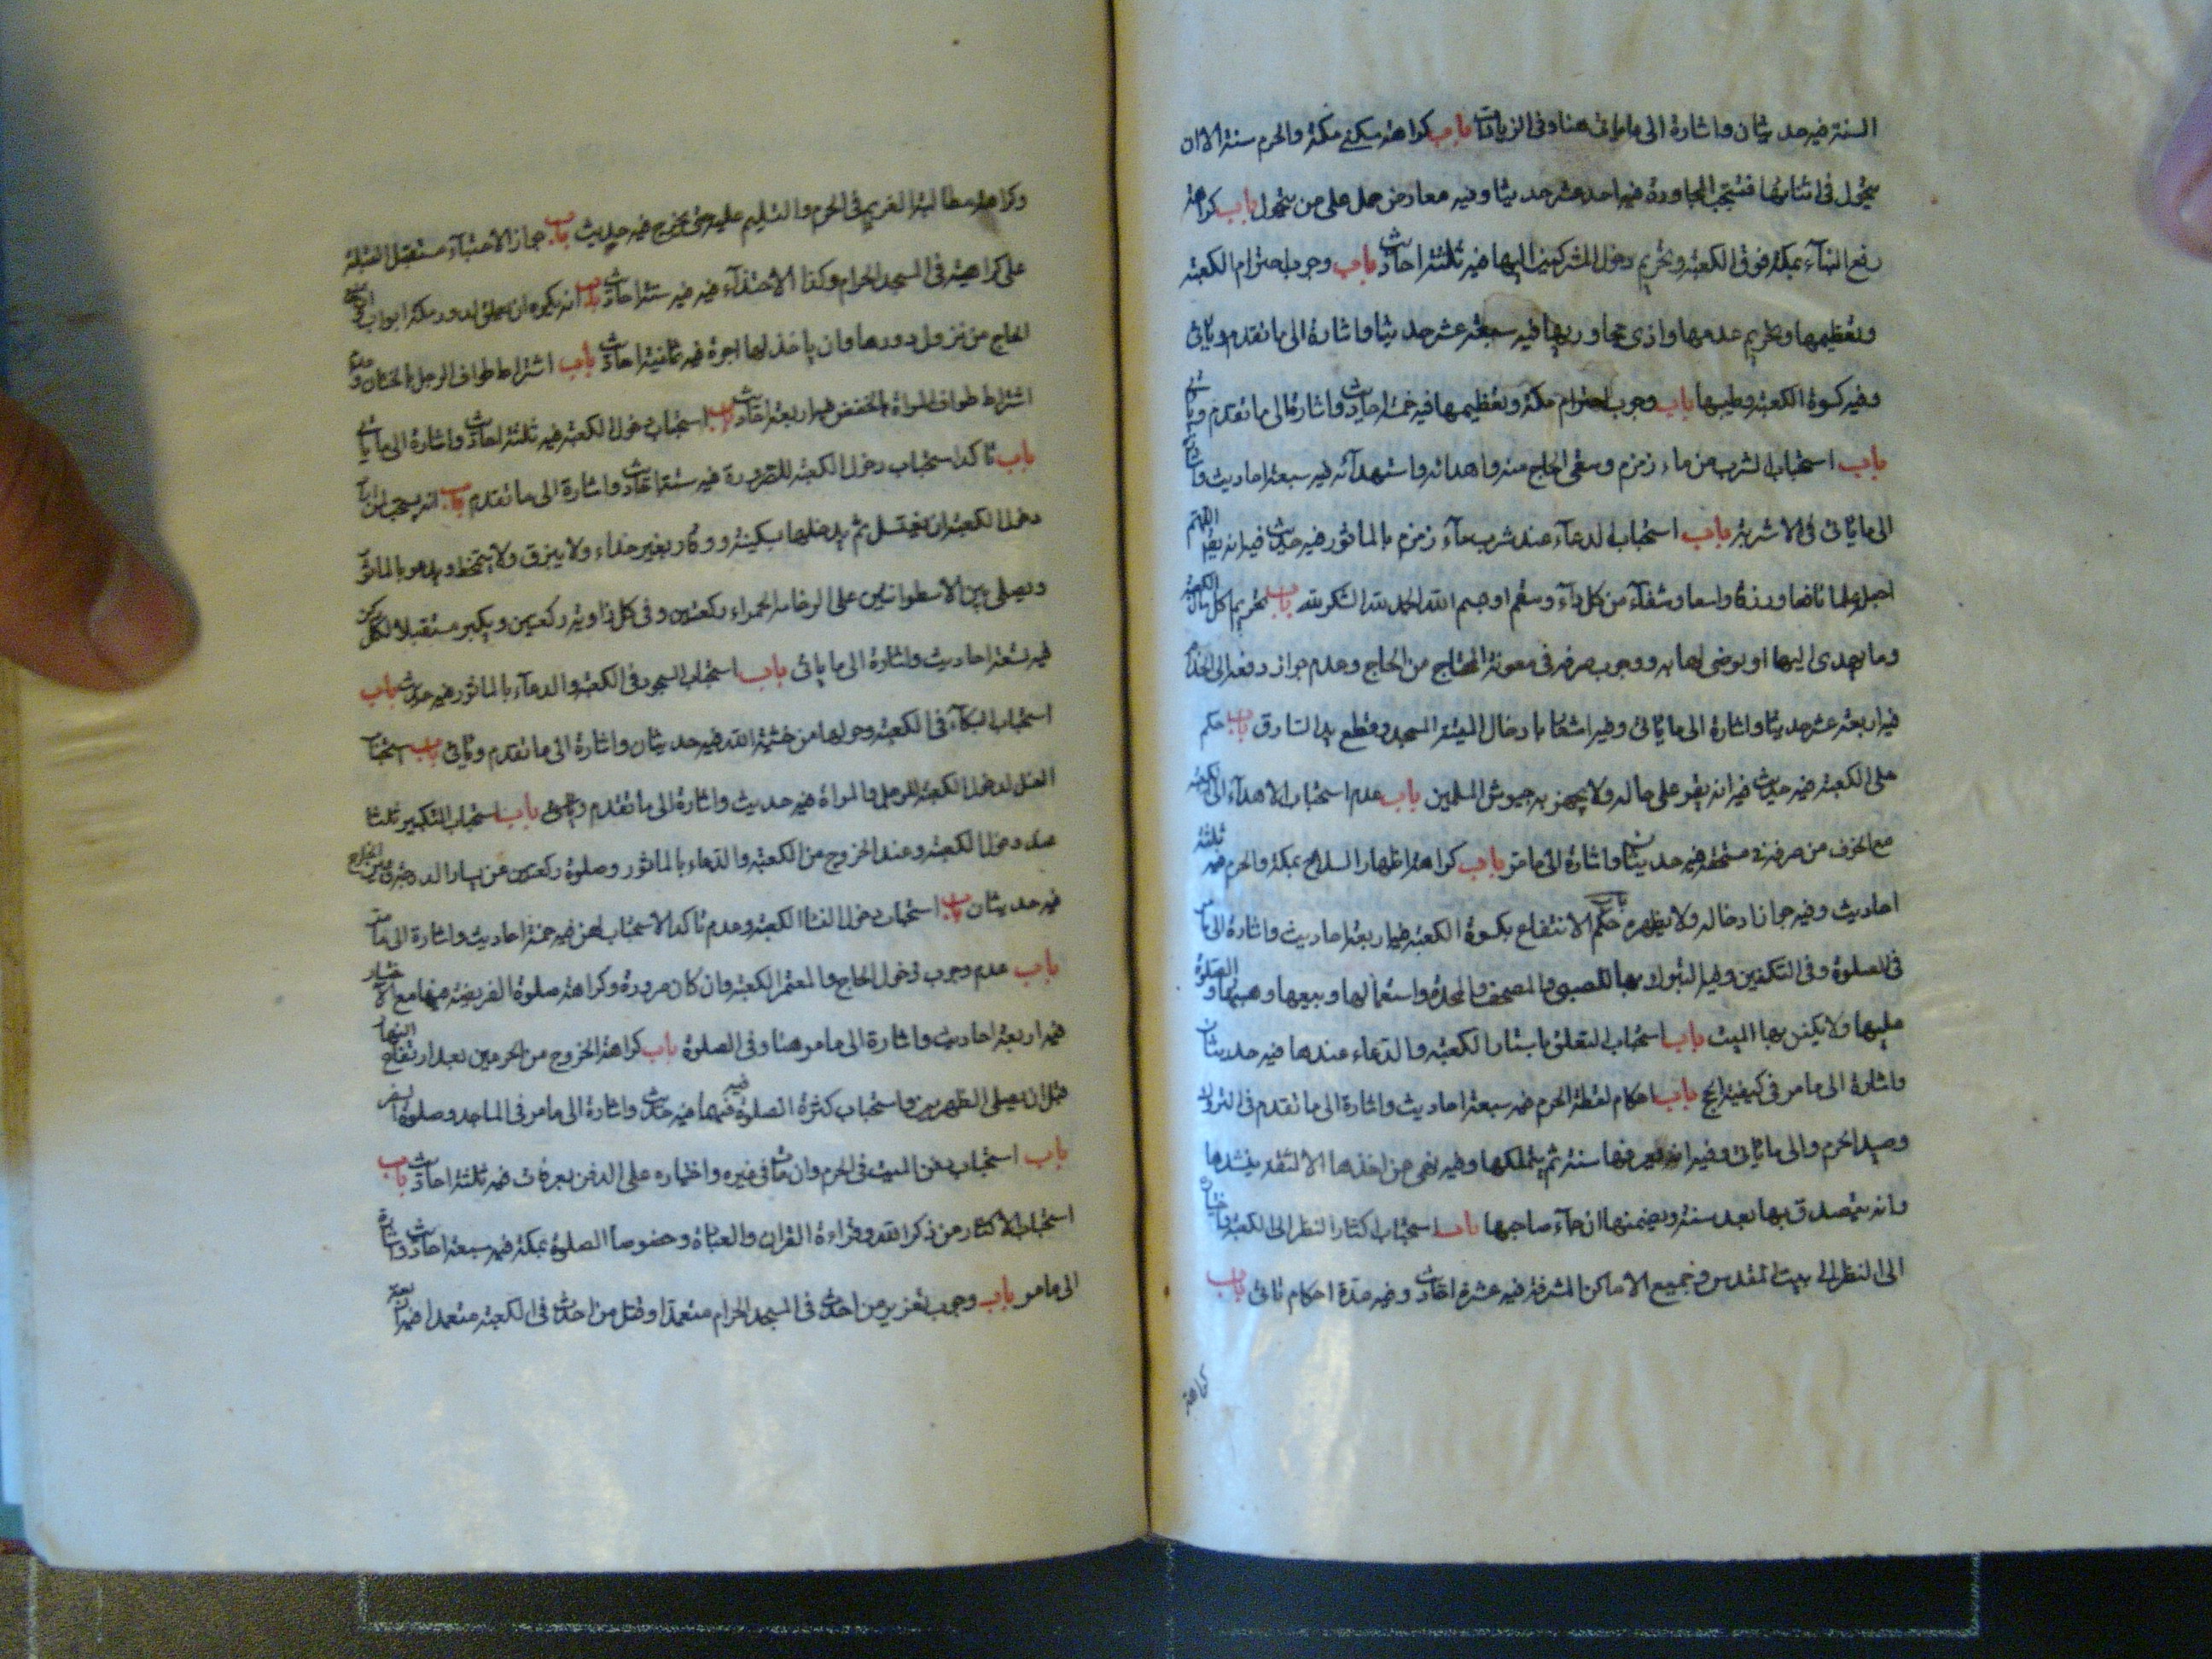 السنة فيه حديثان واشارة الى ما ياتى هنا وفى الزيارات باب كراهة سكنى مكة والحرم سنة الا ان
يتحول فى اثنائها فتستحب المجاورة فيه احد عشر حديثا وفيه معارض حمل على من يتحول باب كراهة
رفع البنآء بمكة فوق الكعبة وتحريم دخول المشركين اليها فيه ثلثة احاديث باب وجوب احترام الكعبة
وتعظيمها وتحريم هدمها واذى مجاوريها فيه سبعة عشر حديثا واشارة الى ما تقدم وياتى
وفيه كسوة الكعبة وطيبها باب وجوب احترام مكة وتعظيمها فيه خمسة احاديث واشارة الى ما تقدم وياتى
باب استحباب الشرب من ماء زمزم وسقى الحاج منه واهدائه واستهدائه فيه سبعة احاديث واشارة
الى ما ياتى فى الاشربة باب استحباب الدعآء عند شرب مآء زمزم بالماثور فيه حديث فيه انه يقول اللهم
اجعله علما نافعا ورزقا واسعا وشفآء من كل دآء وسقم او بسم الله الحمد لله الشكر لله باب تحريم اكل مال الكعبة
وما يهدى اليها او يوصى لها به ووجوب صرفه فى معونة المحتاج من الحاج وعدم جواز دفعه الى الخدام
فيه اربعة عشر حديثا واشارة الى ما ياتى وفيه اشعار بادخال الميتة المسجد وقطع يد السارق باب حكم
حلى الكعبة فيه حديث فيه انه يقر على حاله ولا يجهز به جيوش المسلمين باب عدم استحباب الاهدآء الى الكعبة
مع الخوف من صرفه فى غير مستحقه فيه حديثان واشارة الى ما مر باب كراهة اظهار السلاح بمكة والحرم فيه ثلثة
احاديث وفيه جواز ادخاله ولا يظهره باب حكم الانتفاع بكسوة الكعبة فيه اربعة احاديث واشارة الى ما مر
فى الصلوة وفى التكفين وفيه التبرك بها للصبى والمصحف والمخدة واستعمالها وبيعها وهبتها والصلوة
عليها ولا يكفن بها الميت باب استحباب التعلق باستار الكعبة والدعاء عندها فيه حديثان
واشارة الى ما مر فى كيفية الحج باب احكام لقطة الحرم فيه سبعة احاديث واشارة الى ما تقدم فى التروك
وصيد الحرم والى ما ياتى وفيه انه يعرفها سنة ثم يتملكها وفيه نهى عن اخذها الا لثقة ينشدها
وانه يتصدق بها بعد سنة ويضمنها ان جآء صاحبها باب استحباب اكثار النظر الى الكعبة واختياره
الى النظر الى بيت المقدس وجميع الاماكن المشرفة فيه عشرة احاديث وفيه عدة احكام تاتى باب
كراهة
وكراهة مطالبة الغريم فى الحرم والتسليم عليه حتى يخرج فيه حديث باب جواز الاحتبآء مستقبل القبلة
على كراهية فى المسجد الحرام وكذا الاحتذآء فيه فيه ستة احاديث باب انه يكره ان يعلق لدور مكة ابواب
الحاج من نزول دورها وان ياخذ لها اجرة فيه ثمانية احاديث باب اشتراط طواف الرجل بالختان وعدم
اشتراط طواف المراة بالخفض فيه اربعة احاديث باب استحباب دخول الكعبة فيه ثلثة احاديث واشارة الى ما ياتى
باب تاكد استحباب دخول الكعبة للصرورة فيه ستة احاديث واشارة الى ما تقدم باب انه يستحب لمن اراد
دخول الكعبة ان يغتسل ثم يدخلها بسكينة ووقار بغير حذاء ولا يبزق ولا يتمخط ويدعو بالماثور
ويصلى بين الاسطوانتين على الرخامة الحمراء ركعتين وفى كل زاوية ركعتين ويكبر مستقبلا لكل ركن
فيه تسعة احاديث واشارة الى ما ياتى باب استحباب السجود فى الكعبة والدعآء بالماثور فيه حديث باب
استحباب البكآء فى الكعبة وحولها من خشية الله فيه حديثان واشارة الى ما تقدم وياتى باب استحباب
الغسل لدخول الكعبة للرجل والمراة فيه حديث واشارة الى ما تقدم وياتى باب استحباب التكبير ثلثا
عند دخول الكعبة وعند الخروج من الكعبة والدعاء بالماثور وصلوة ركعتين عن يسار الدرجة
فيه حديثان باب استحباب دخول النسآ الكعبة وعدم تاكد الاستحباب لهن فيه خمسة احاديث واشارة الى ما مر
باب عدم وجوب دخول الحاج والمعتمر الكعبة وان كان صرورة وكراهة صلوة الفريضة فيها مع الاختيار
فيه اربعة احاديث واشارة الى ما مر هنا وفى الصلوة باب كراهة الخروج من الحرمين بعد ارتفاع النهار
قبل ان يصلى الظهرين واستحباب كثرة الصلوة فيهما فيه حديث واشارة الى ما مر فى المساجد وصلوة السفر
باب استحباب دفن الميت فى الحرم وان مات فى غيره واختياره على الدفن بعرفات فيه ثلثة احاديث باب
استحباب الاكثار من ذكر الله وقراءة القران والعبادة وخصوصا الصلوة بمكة فيه سبعة احاديث واشارة
الى ما مر باب وجوب تعزير من احدث فى المسجد الحرام متعمدا وقتل من احدث فى الكعبة متعمدا فيه اربعة